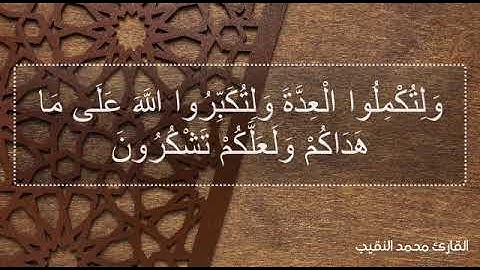 وَلِتُكْمِلُوا الْعِدَّةَ وَلِتُكَبِّرُوا اللَّهَ عَلَى مَا
هَدَاكُمْ وَلَعَلَّكُمْ تَشْكُرُونَ
القارئ محمد النقيب